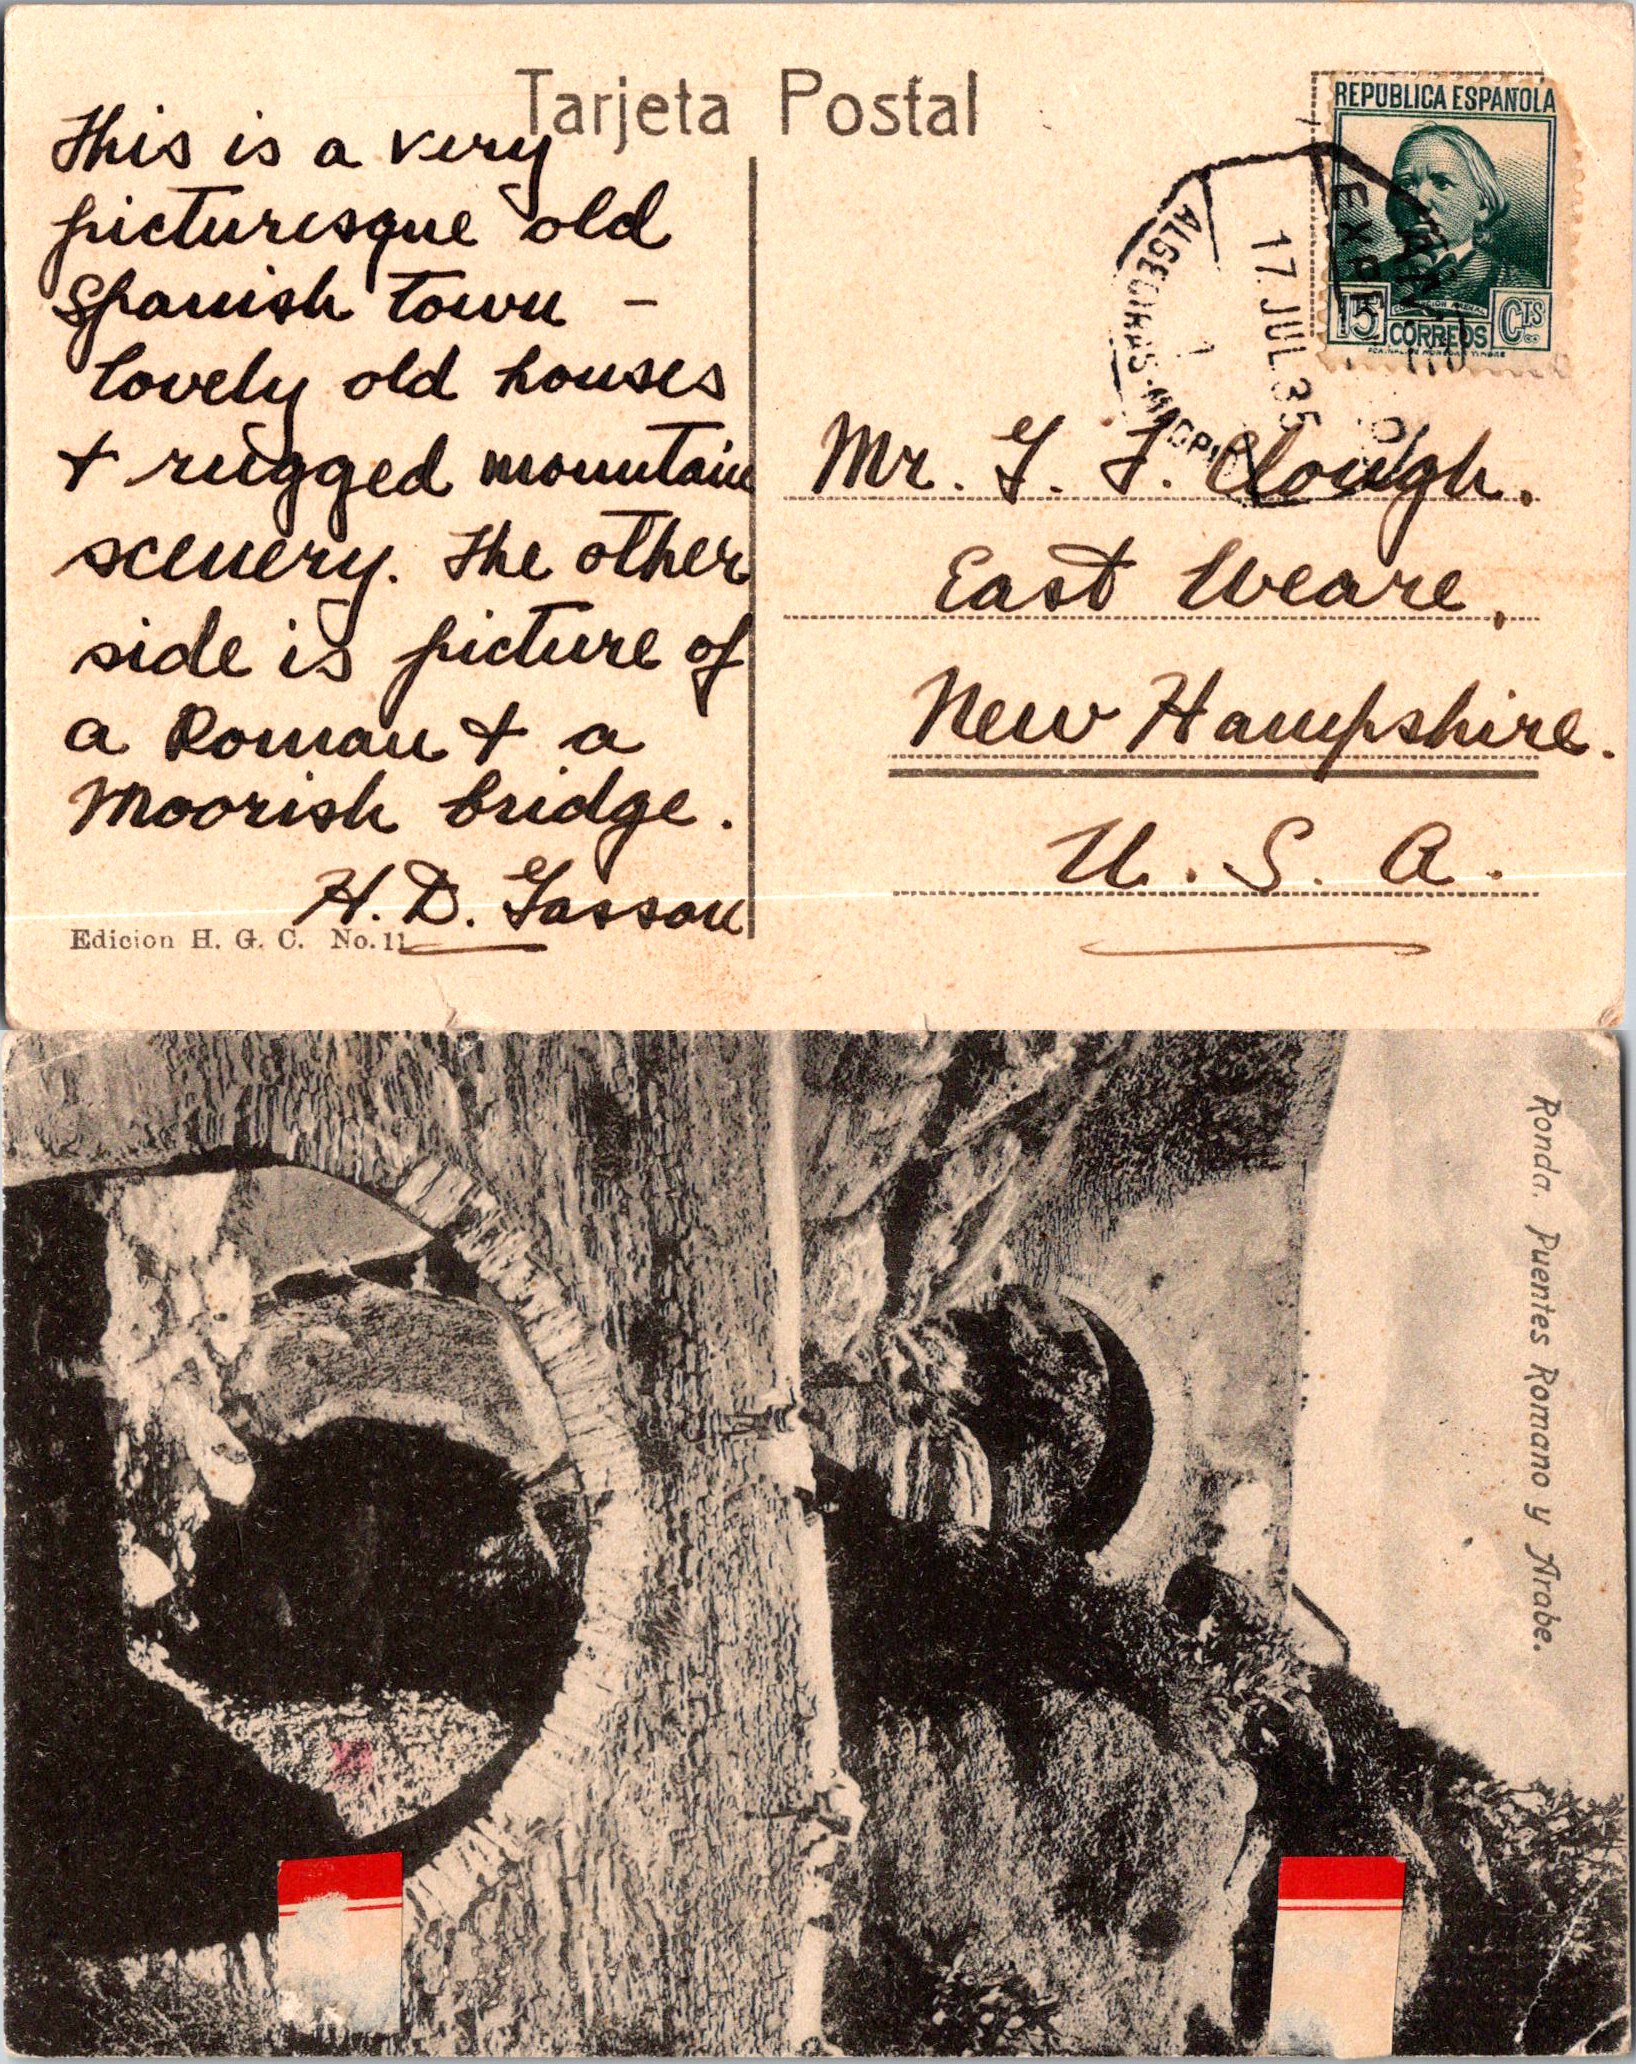 Tarjeta Postal
This is a very
picturesque old
Spanish town –
lovely old houses
+ rugged mountain
scenery. The other
side is picture of
a Roman + a
Moorish bridge.
H. D. Gasson
Edicion H. G. C. No. 11
REPUBLICA ESPAÑOLA
15 CORREOS CTS
ALGECIRAS-MADRID
17 JUL 35
Mr. G. F. Clough.
East Weare,
New Hampshire.
U. S. A.
Ronda. Puentes Romano y Arabe.